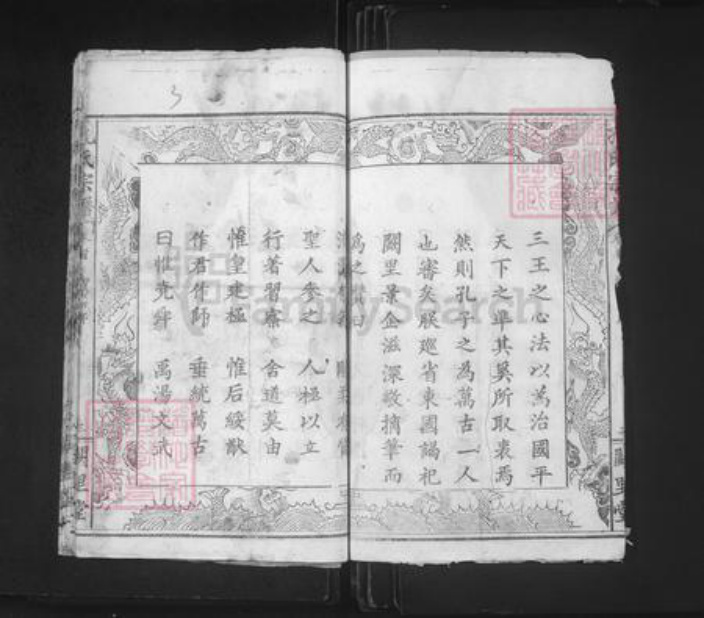 三王之心法以為治國平
天下之準其奚所取衷焉
然則孔子之為萬古一人
也審矣朕廵省東國謁祀
闕里景企滋深敬摛筆而
為之贊曰
聖人參之 人極以立
行著習察 舍道莫由
惟皇建極 惟后綏猷
作君作師 垂統萬古
曰惟堯舜 禹湯文武
氏宗
闕里堂
闕里堂
FamilySearch